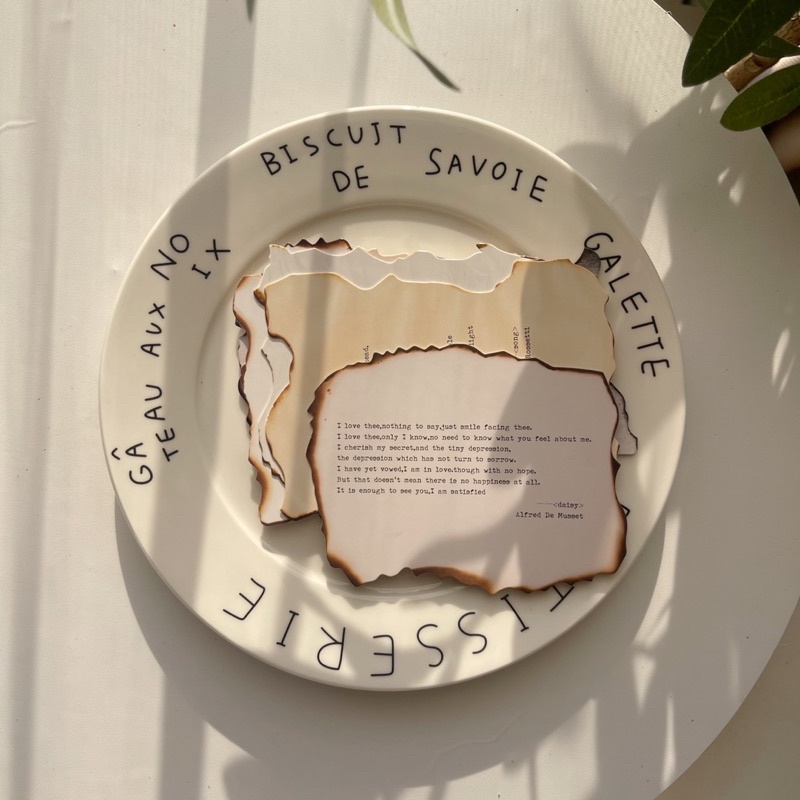 BISCUIT
DE SAVOIE
GALETTE
GÂTEAU AUX NOIX
I love thee,nothing to say,just smile facing thee.
I love thee,only I know,no need to know what you feel about me.
I cherish my secret,and the tiny depression,
the depression which has not turn to sorrow.
I have yet vowed,I am in love.though with no hope.
But that doesn't mean there is no happiness at all.
It is enough to see you,I am satisfied
——<daisy>
Alfred De Musset
light
<song>
TISSERIE